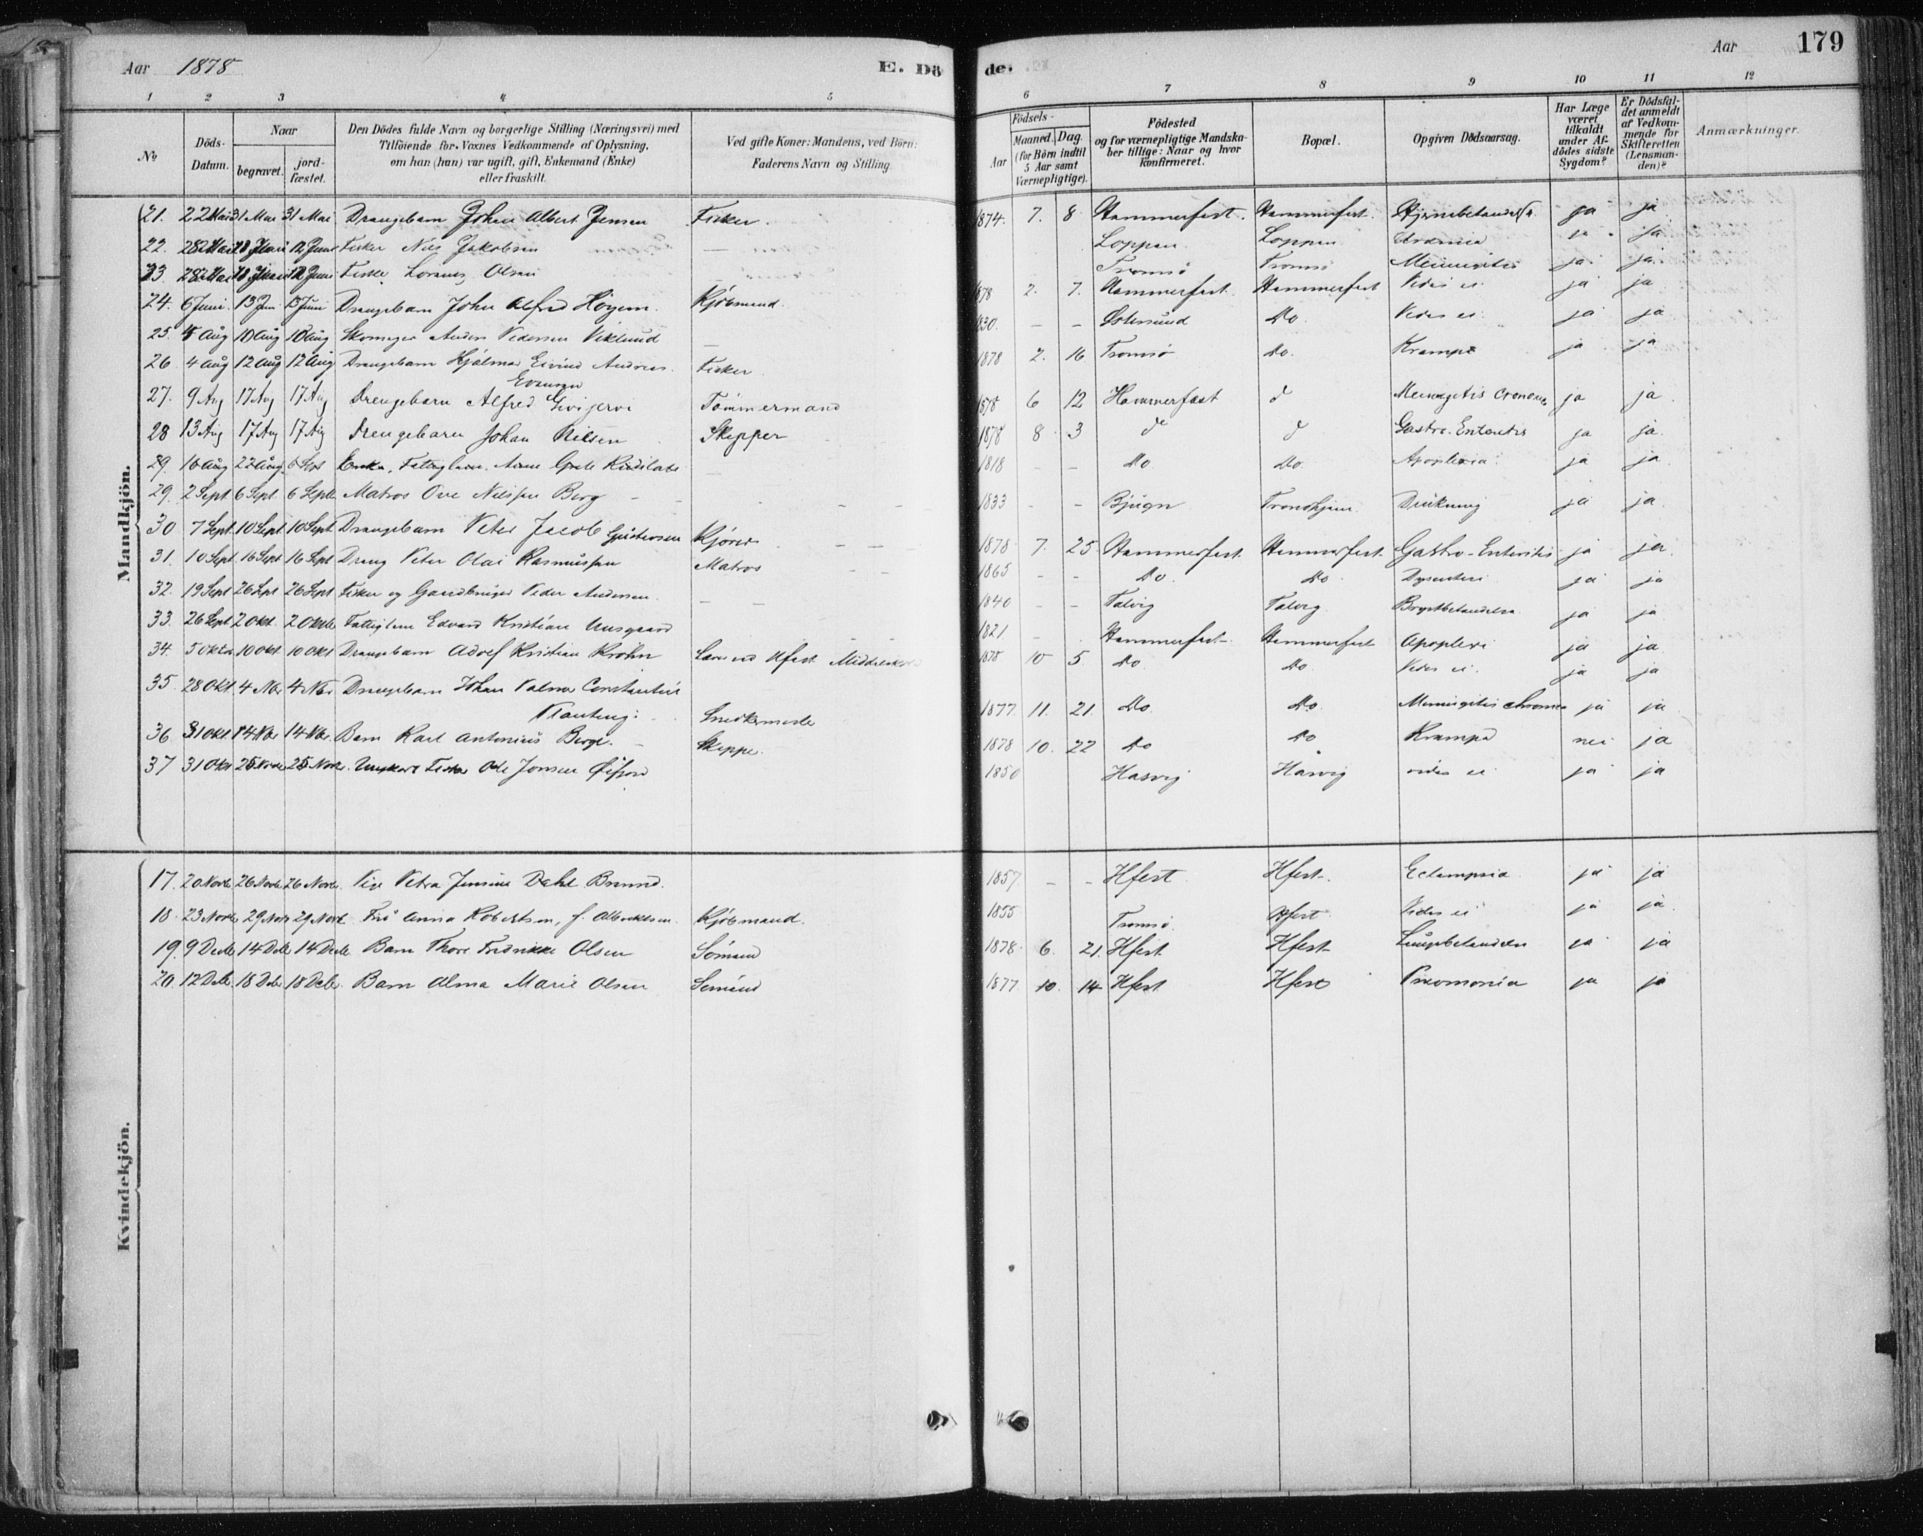 Aar 1878 E. Dö de. Aar 179
1 2 3 4 5 6 7 8 9 10 11 12
No
Döds-Datum.
Naar begravet. jordfæstet.
Den Dödes fulde Navn og borgerlige Stilling (Næringsvei) med
Tilföiende for Voxnes Vedkommende af Oplysning,
om han (hun) var ugift, gift, Enkemand (Enke)
eller fraskilt.
Ved gifte Koner: Mandens, ved Börn:
Faderens Navn og Stilling.
Födsels-
Aar Maaned. Dag.
(for Börn indtil
5 Aar samt
Værnepligtige).
Födested
og for værnepligtige Mandska-
ber tillige: Naar og hvor
konfirmeret.
Bopæl.
Opgiven Dödsaarsag.
Har Læge
været
tilkaldt
under Af-
dödes sidste
Sygdom?
Er Dödsfal-
det anmeldt
af Vedkom-
mende for
Skifteretten
(Lensman-
den)?
Anmærkninger.
Mandkjön.
21. 22 Mai 31 Mai 31 Mai Drengebarn Johan Albert Jensen Fisker. 1874. 7. 8 Hammerfest. Hammerfest. ja ja
22. Fisker Nils Jakobsen Loppen Loppen ja ja
23 Fisker Lorents Olsen Tromsø Tromsø Meningitis ja ja
24. 6 Juni 13 Jun 13 Juni Drengebarn John Alfred Kjøbmand. 1878 2. 7. Hammerfest Hammerfest Vides ei ja ja
25. 4 Aug 10 Aug 10 Aug Skomager Anders Pedersen Viklund 1830. - - Østersund Do. Vides ei ja ja
26 4 Aug 12 Aug 12 Aug Drengebarn Hjalmar Eivind Andreas Fisker. 1878 2. 16 Tromsø Do. Krampe ja ja
27. 9 Aug 17 Aug 17 Aug Drengebarn Alfred Tømmermand 1878 6 12 Hammerfest d ja ja
28 13 Aug 17 Aug 17 Aug Drengebarn Johan Nilsen Skipper 1878 8 3 do d Gastro-Enteritis ja ja
29. 16 Aug 22 Aug 6 Sept Enke, Fattiglem 1818 - - Do. Do. Apoplexia ja ja
29. 2 Sept 6 Sept 6 Septb Matros Ove Nilsen Berg 1833 - - Bjugn Trondhjem Drukning ja ja
30 7 Sept 10 Sept 10 Sept Drengebarn Peter Jacob 1878 7. 25 Hammerfest Hammerfest. Gastro-Enteritis ja ja
31. 10 Sept 16 Sept 16 Sept Dreng Peter Olai Rasmussen Matros 1865 - - Do. Do Dysenteri ja ja
32. 19 Sept 26 Sept 26 Sept Fisker og Gaardbruger Peder Andersen - - 1840 - - Talvig Talvig Brystbetændelse ja ja
33. 26 Sept 2 Okt. 2 Oktb Fattiglem Edvard Kristian 1821 - Hammerfest Hammerfest Apoplexi ja ja
34. 5 Oktb 10 Okt 10 Okt Drengebarn Adolf Kristian Krohn 1878 10 5 Do. Do. Vides ei. ja ja
35. 28 Okt 4 Nbr 4 Nbr Drengebarn Johan Palmer Constantin
Snedkermester 1877. 11. 21. Do. Do. ja ja
36. 31 Okt 14 Nbr 14 Nbr. Barn Karl Antonius Berge. Skipper. 1878 10. 22 Do Do Krampe nei ja
37 31 Okt 25 Novbr 25 Novbr. Fisker Ole Jonsen 1850 Hasvig Hasvig vides ei ja ja
Kvindekjön.
17. 20 Novb 26 Novb 26 Novb. Pige Petra Jensine Dahl 1857 - - Hfest Hfest. Eclampsia ja ja
18. 23 Novb 29 Novb 29 Novb. Fru Anna Robertsen, f. Kjøbmand. 1855 Tromsø Hfest. Vides ei ja ja
19. 9 Decbr 14 Dcbr 14 Decbr Barn Thora Fredrikke Olsen Sømand 1878. 6. 21. Hfest Hfest Lungebetændelse ja ja
20. 12 Dcbr 18 Dcbr 18 Dcbr. Barn Alma Marie Olsen Sømand 1877 10. 14 Hfest Hfest Pneomonia ja ja